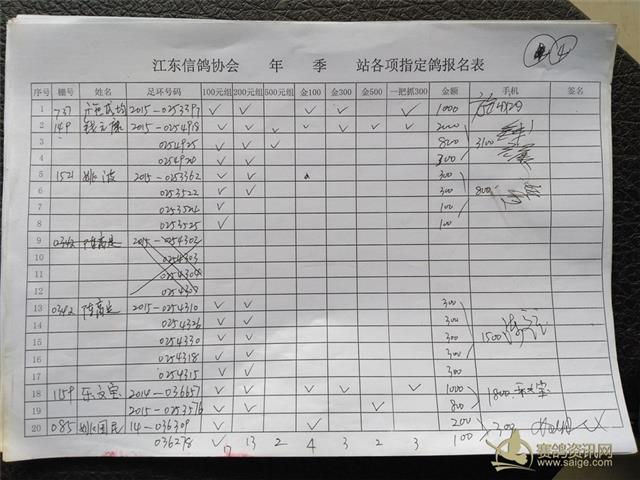 江东信鸽协会 年 季 站各项指定鸽报名表
序号 棚号 姓名 足环号码 100元组 200元组 500元组 金100 金300 金500 一把抓300 金额 手机 签名
1 737 2015-0253397 ✓ ✓ ✓ ✓ ✓ 1000
2 149 2015-0254918 ✓ ✓ ✓ ✓ ✓ ✓ ✓ 2000
3 0254925 ✓ ✓ ✓ 800 3100
4 0254920 ✓ ✓ 300
5 1521 姚波 2015-0253362 ✓ ✓ 300
6 0253522 ✓ ✓ 300 800
7 0253524 ✓ 100
8 0253525 ✓ 100
9 0342 2015-0254302
10 0254303
11 0254304
12 0254309
13 0342 2015-0254310 ✓ ✓ 300
14 0254326 ✓ ✓ 300
15 0254330 ✓ ✓ 300 1500
16 0254318 ✓ ✓ 300
17 0254315 ✓ ✓ 300
18 1159 乐文宝 2014-036657 ✓ ✓ ✓ ✓ ✓ 1000 1800 乐文宝
19 2015-0253576 ✓ ✓ ✓ 800
20 085 姚国民 14-036309 ✓ 200 300
036278 ✓ 17 13 2 4 3 2 3 100
赛鸽资讯网
www.saige.com